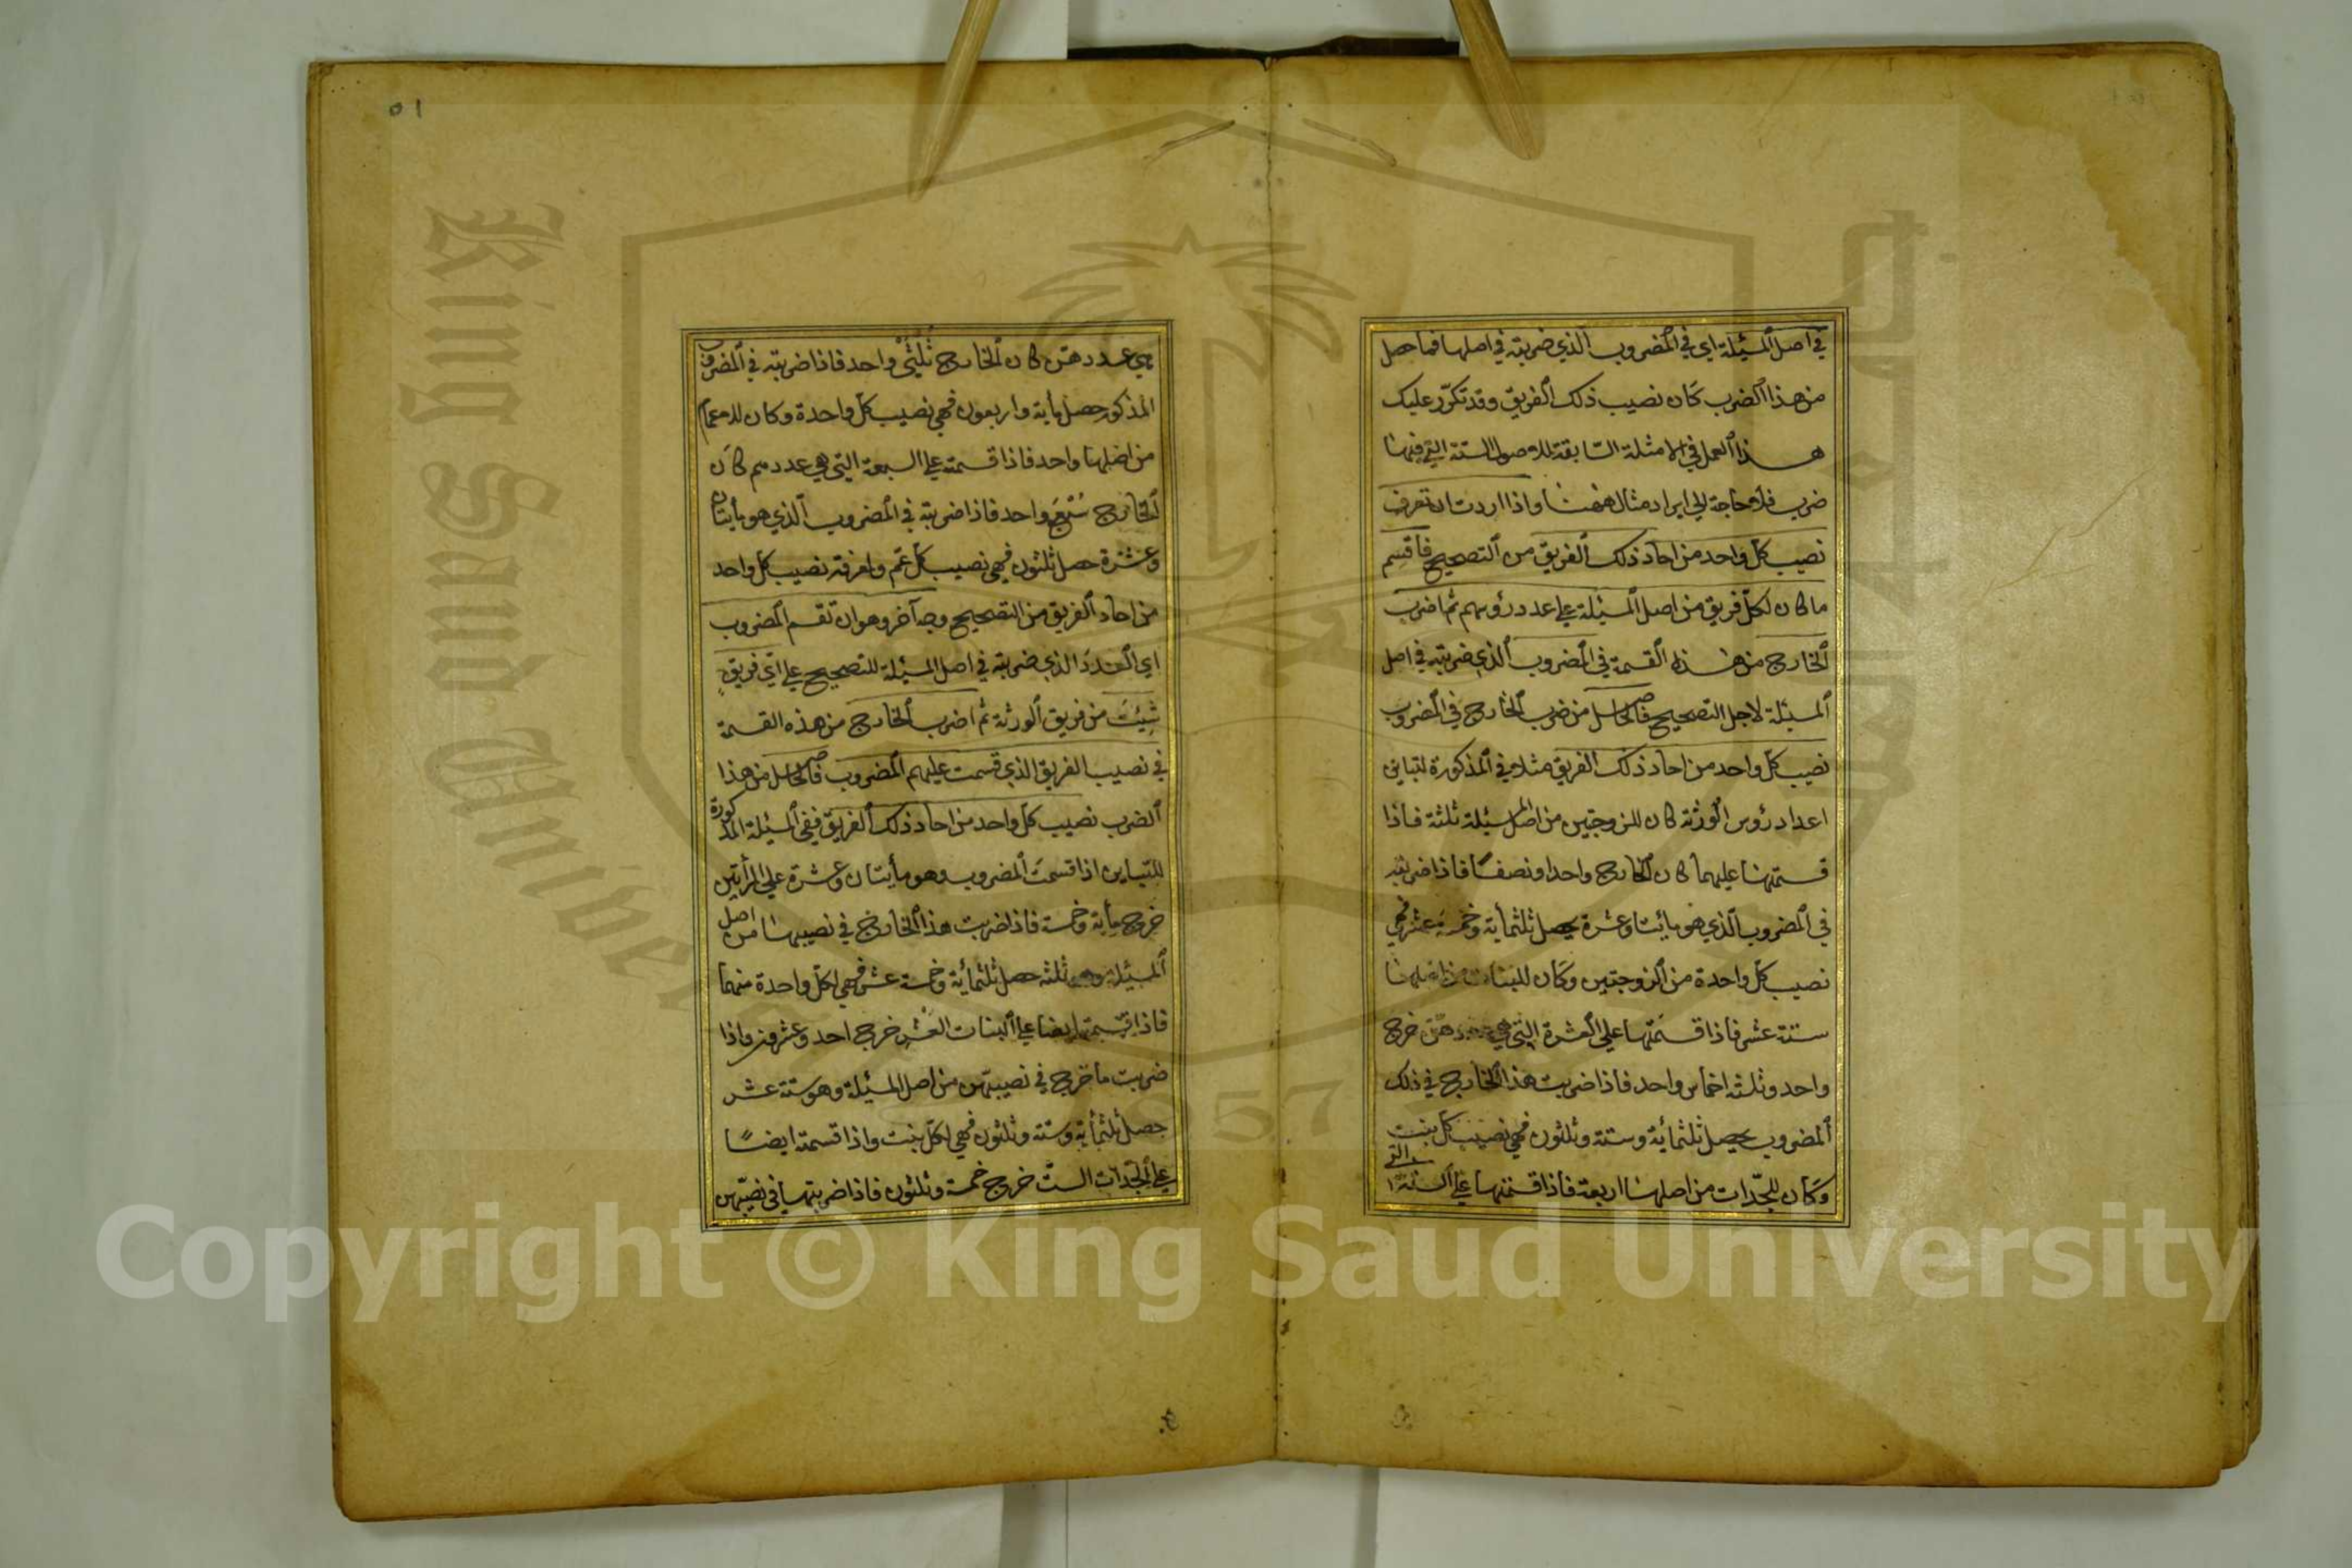 في اصل المسئلة اي في المضروب الذي ضربته في اصلها فما حصل
من هذا الضرب كان نصيب ذلك الفريق وقد تكرر عليك
هذا العمل في الامثلة السابقة للاصول الستة التي فيها
ضرب فلا حاجة الى ايراد مثال ههنا واذا اردت ان تعرف
نصيب كل واحد من احاد ذلك الفريق من التصحيح فاقسم
ما كان لكل فريق من اصل المسئلة على عدد رؤسهم ثم اضرب
الخارج من هذه القسمة في المضروب الذي ضربته في اصل
المسئلة لاجل التصحيح فالحاصل من ضرب الخارج في المضروب
نصيب كل واحد من احاد ذلك الفريق مثلا في المذكورة لتباين
اعداد رؤس الورثة كان للزوجتين من اصل المسئلة ثلثة فاذا
قسمتها عليهما كان الخارج واحدا ونصفا فاذا ضربته
في المضروب الذي هو مايتا وعشرة يحصل ثلثماية وخمسة عشر فهي
نصيب كل واحدة من الزوجتين وكان للبنات من اصلها
ستة عشر فاذا قسمتها على العشرة التي هي عدد هن خرج
واحد وثلثة اخماس واحد فاذا ضربت هذا الخارج في ذلك
المضروب يحصل ثلثماية وستة وثلثون فهي نصيب كل بنت
وكان للجدات من اصلها اربعة فاذا قسمتها على الستة التي
٥١
هي عددهن كان الخارج ثلثي واحد فاذا ضربته في المضروب
المذكور حصل ماية واربعون فهي نصيب كل واحدة وكان للاعمام
من اصلها واحد فاذا قسمته على السبعة التي هي عددهم كان
الخارج سبع واحد فاذا ضربته في المضروب الذي هو مأيتان
وعشرة حصل ثلثون فهي نصيب كل عم ولمعرفة نصيب كل واحد
من احاد الفريق من التصحيح وجه آخر وهو ان تقسم المضروب
اي العدد الذي ضربته في اصل المسئلة للتصحيح على اي فريق
شئت من فريق الورثة ثم اضرب الخارج من هذه القسمة
في نصيب الفريق الذي قسمت عليهم المضروب فالحاصل من هذا
الضرب نصيب كل واحد من احاد ذلك الفريق ففي المسئلة المذكورة
للتباين اذا قسمت المضروب وهو مأيتان وعشرة على المرأتين
خرج ماية وخمسة فاذا ضربت هذا الخارج في نصيبهما من اصل
المسئلة وهو ثلثه حصل ثلثمائة وخمسة عشر فهي لكل واحدة منهما
فاذا قسمتها ايضا على البنات العشر خرج احد وعشرون واذا
ضربت ما خرج في نصيبهن من اصل المسئلة وهو ستة عشر
حصل ثلثماية وستة وثلثون فهي لكل بنت واذا قسمته ايضا
على الجدات الست خرج خمسة وثلثون فاذا ضربتها في نصيبهن
King Saud University
1957
Copyright © King Saud University